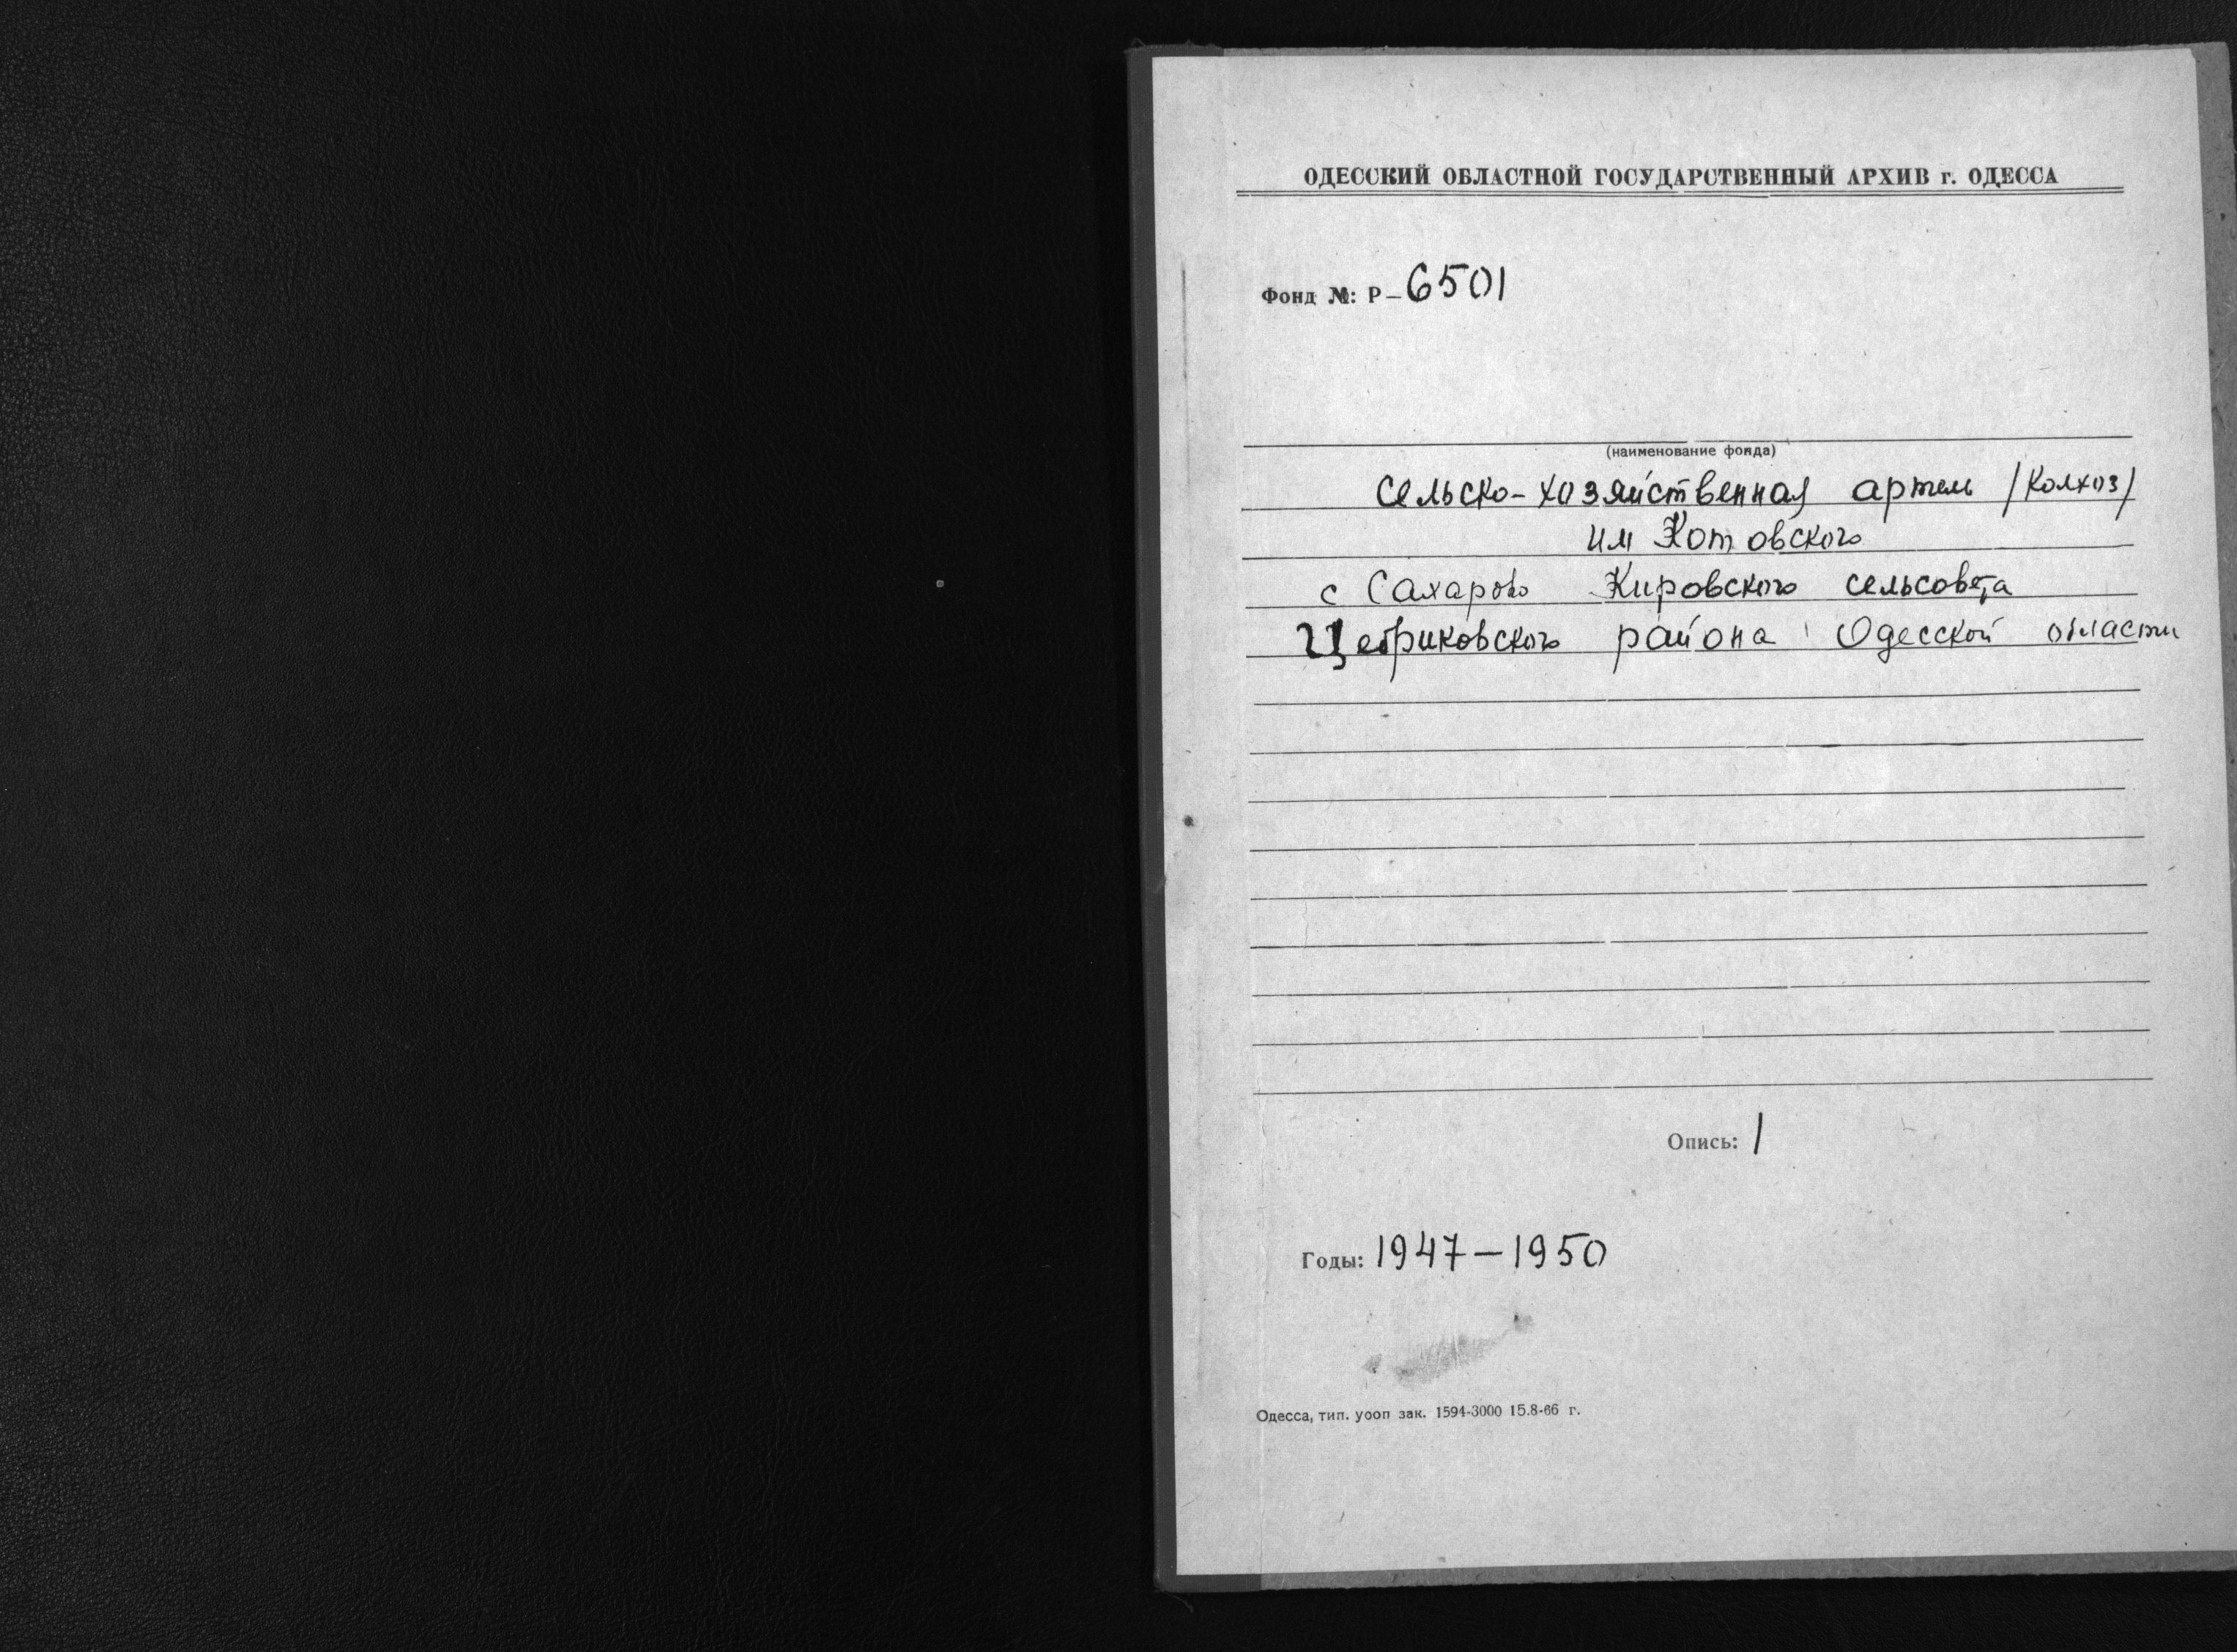 ОДЕССКИЙ ОБЛАСТНОЙ ГОСУДАРСТВЕННЫЙ АРХИВ г. ОДЕССА
Фонд №: Р-6501
(наименование фонда)
Сельско-хозяйственная артель /Колхоз/
им Котовского
с Сахарово Кировского сельсовета
Цебриковского района Одесской области
Опись: 1
Годы: 1947-1950
Одесса, тип. уооп зак. 1594-3000 15.8-66 г.